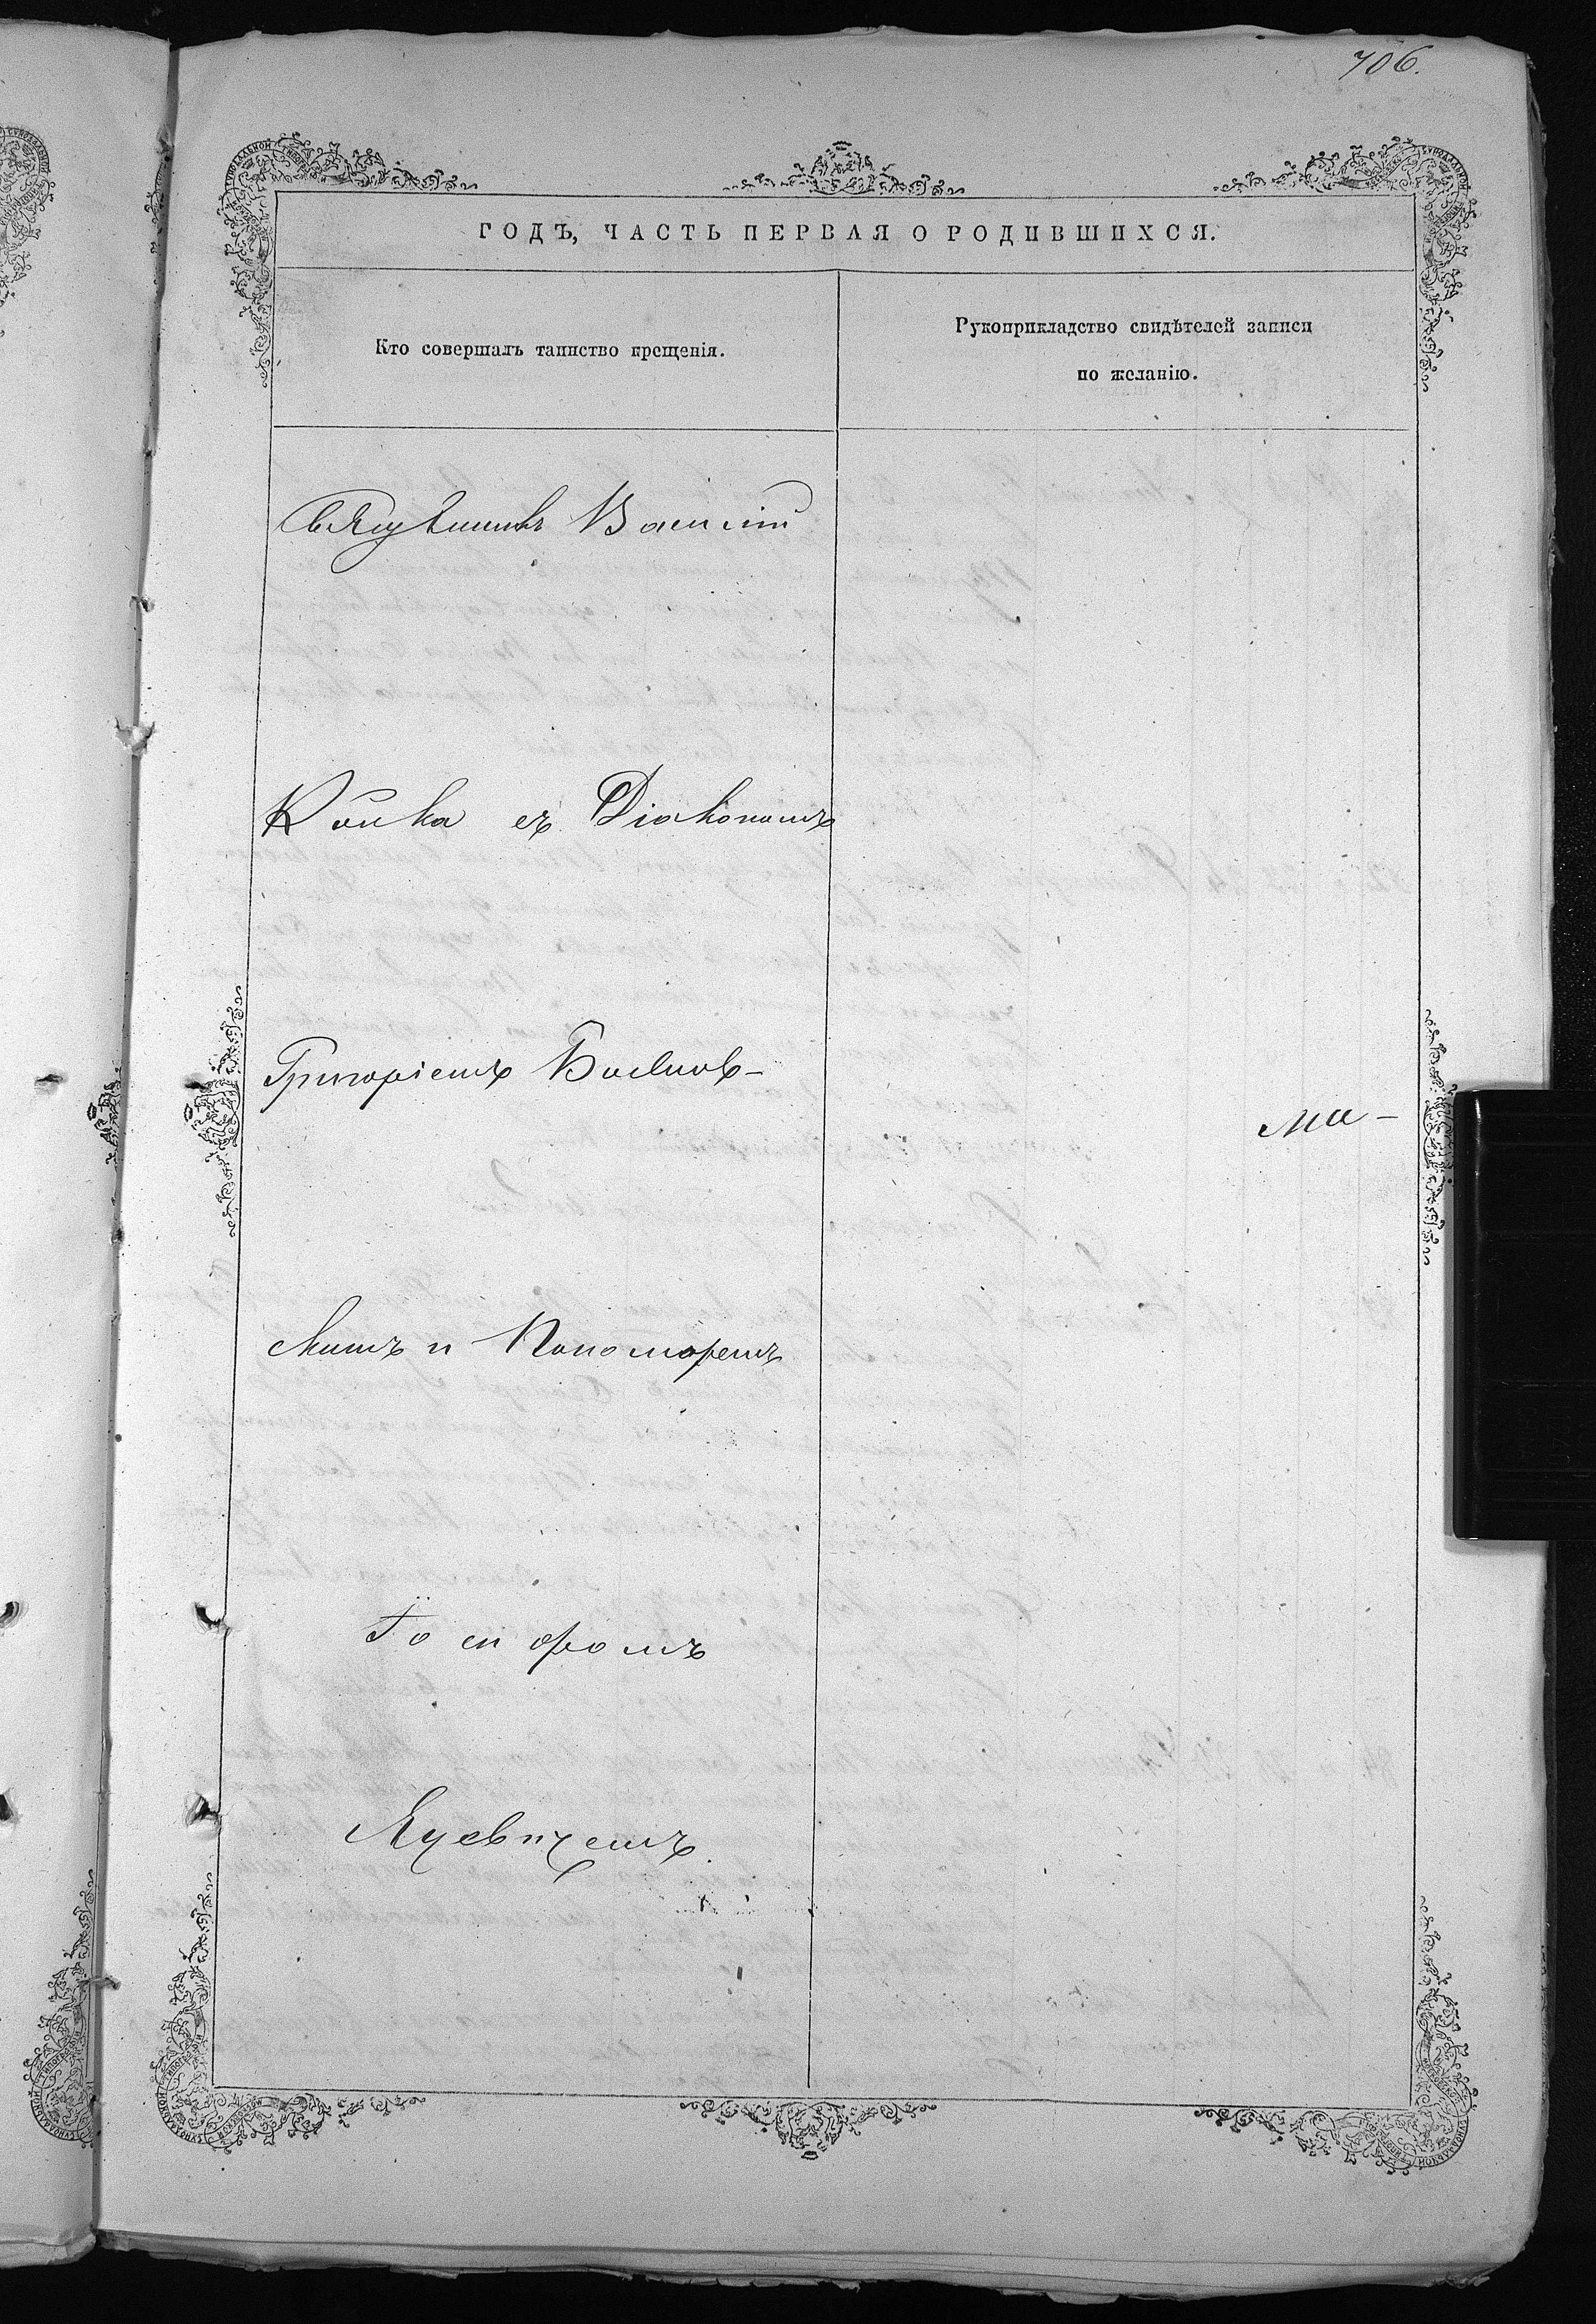 706.
ГОДЪ, ЧАСТЬ ПЕРВАЯ О РОДИВШИХСЯ.
Кто совершалъ таинство крещенія.
Рукоприкладство свидѣтелей записи
по желанію.
Священникъ Василій
Койка съ Діакономъ
Григоріемъ
скимъ и Пономаремъ
Іосифомъ
Яцевичемъ.